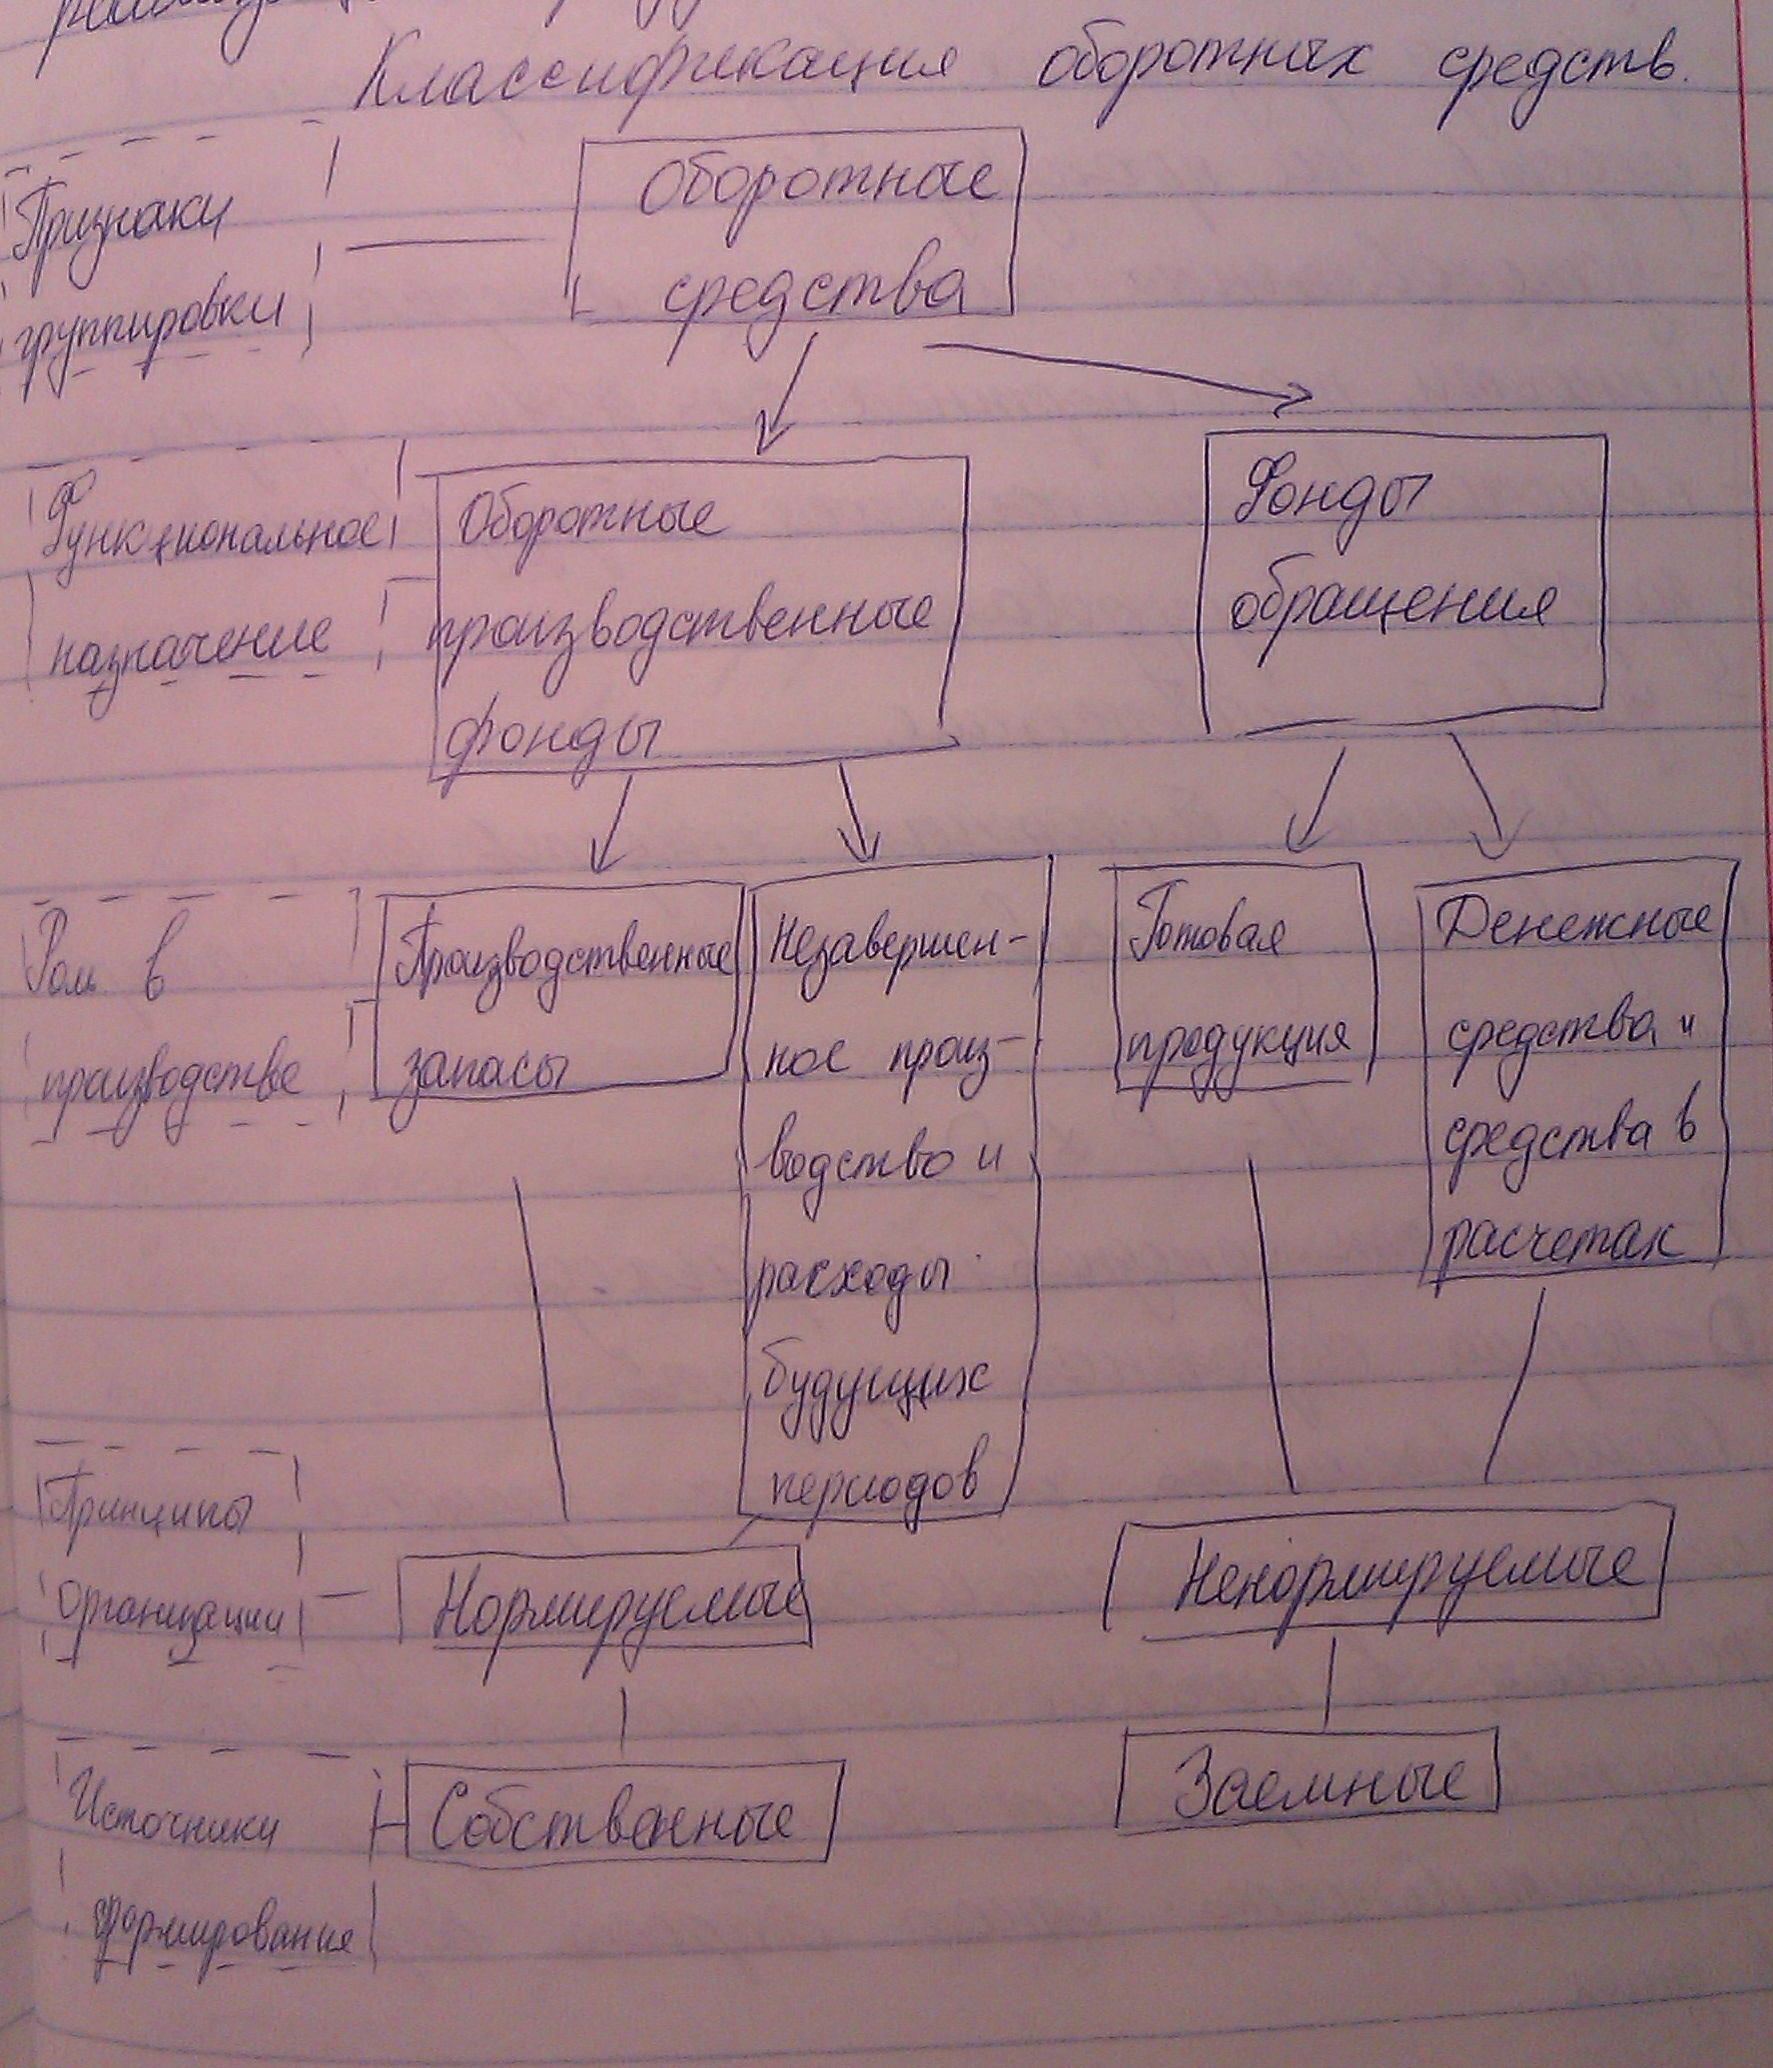 Классификация оборотных средств.
Признаки
группировки
Оборотные
средства
Функциональное
назначение
Оборотные
производственные
фонды
Фонды
обращения
Роль в
производстве
Производственные
запасы
Незавершен-
ное произ-
водство и
расходы
будущих
периодов
Готовая
продукция
Денежные
средства и
средства в
расчетах
Принципы
организации
Нормируемые
Ненормируемые
Источники
формирования
Собственные
Заемные